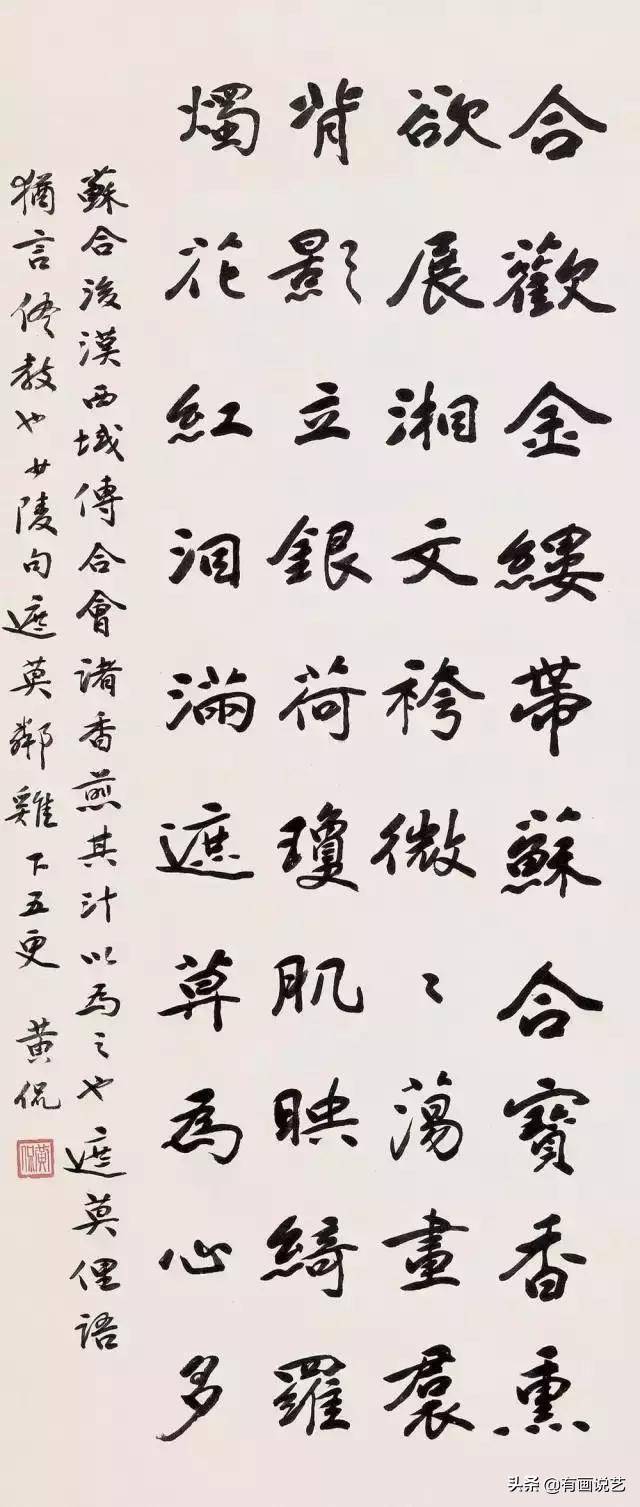 合歡金縷帶蘇合寶香熏
欲展湘文袴微〻蕩畫裠
背影立銀荷瓊肌映綺羅
燭花紅泪滿遮莫為心多
蘇合後漢西域傳合會諸香煎其汁以為之也遮莫俚語
猶言侭教也少陵句遮莫鄰雞下五更 黄侃
黄侃
头条 @有画说艺